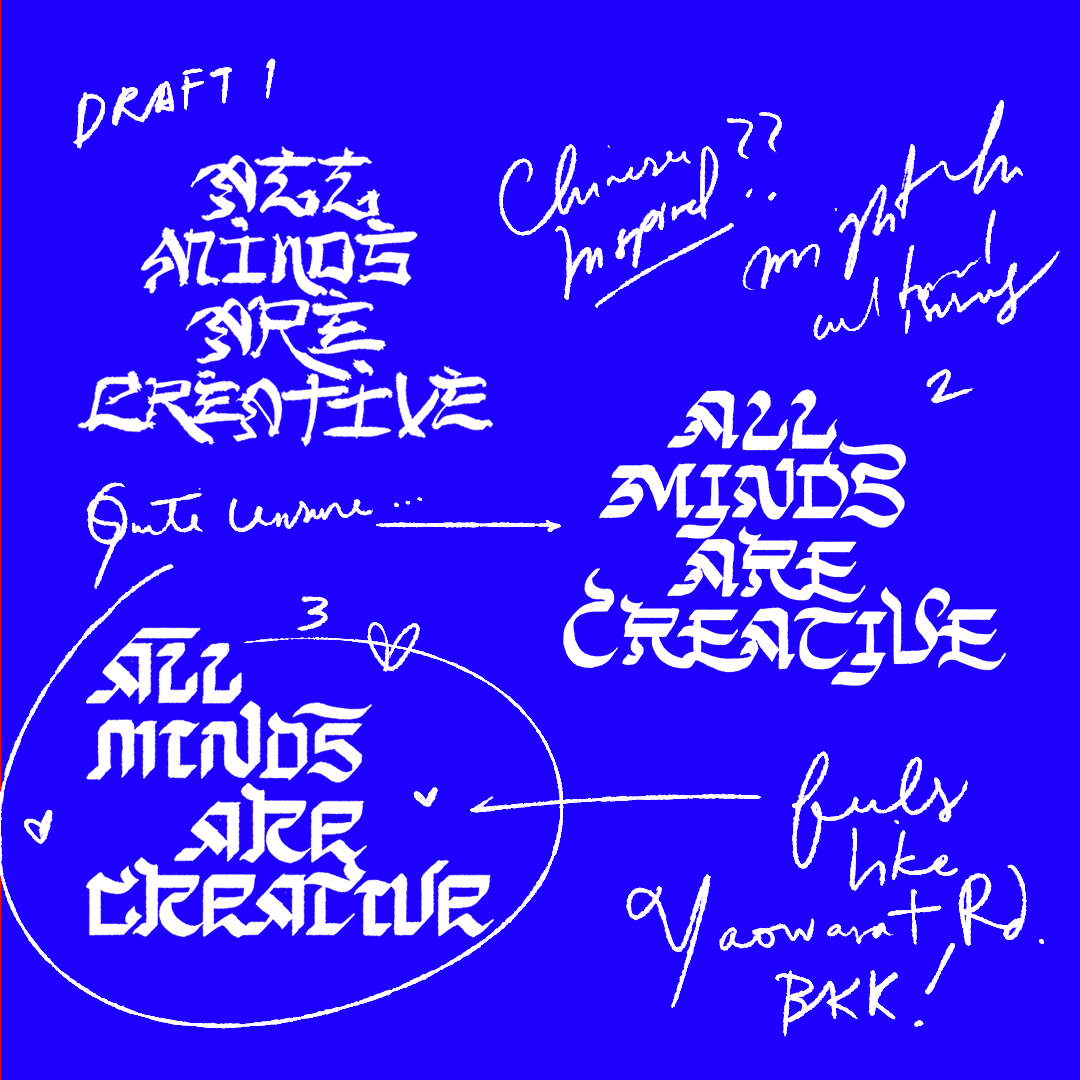 DRAFT 1
ALL
MINDS
ARE
CREATIVE
Chinese ??
Inspired
might
2
ALL
MINDS
ARE
CREATIVE
Quite
3
ALL
MINDS
ARE
CREATIVE
feels
like
Yaowarat Rd.
BKK!